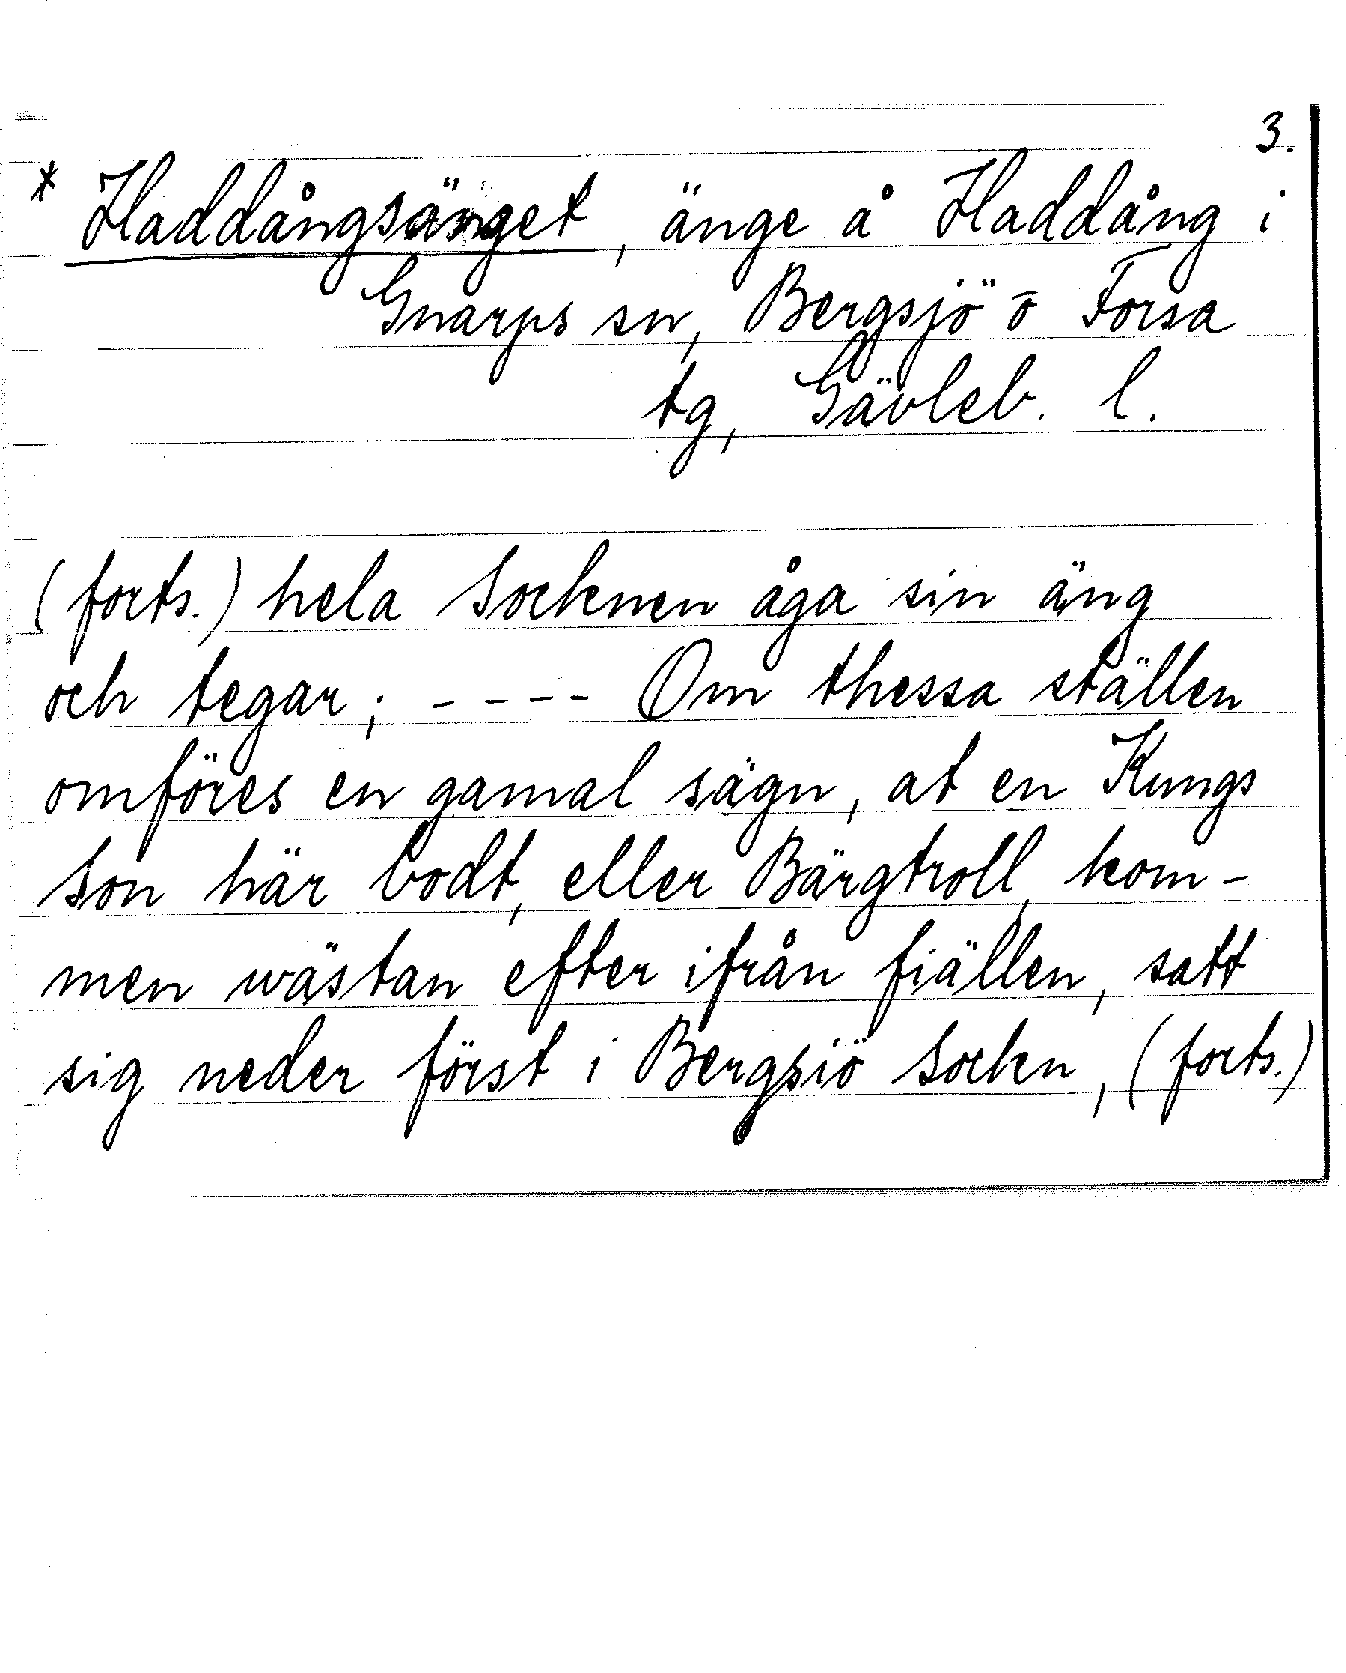 3.
* Haddångsänget, änge å Haddång i
Gnarps sn, Bergsjö o Forsa
tg, Gävleb. l.
(forts.) hela Socknen åga sin äng
och tegar; ---- Om thessa ställen
omföres en gamal sägn, at en Kungs
Son här bodt, eller Bärgtroll, kom-
men wästan efter ifrån fiällen, satt
sig neder först i Bergsiö Sockn, (forts.)